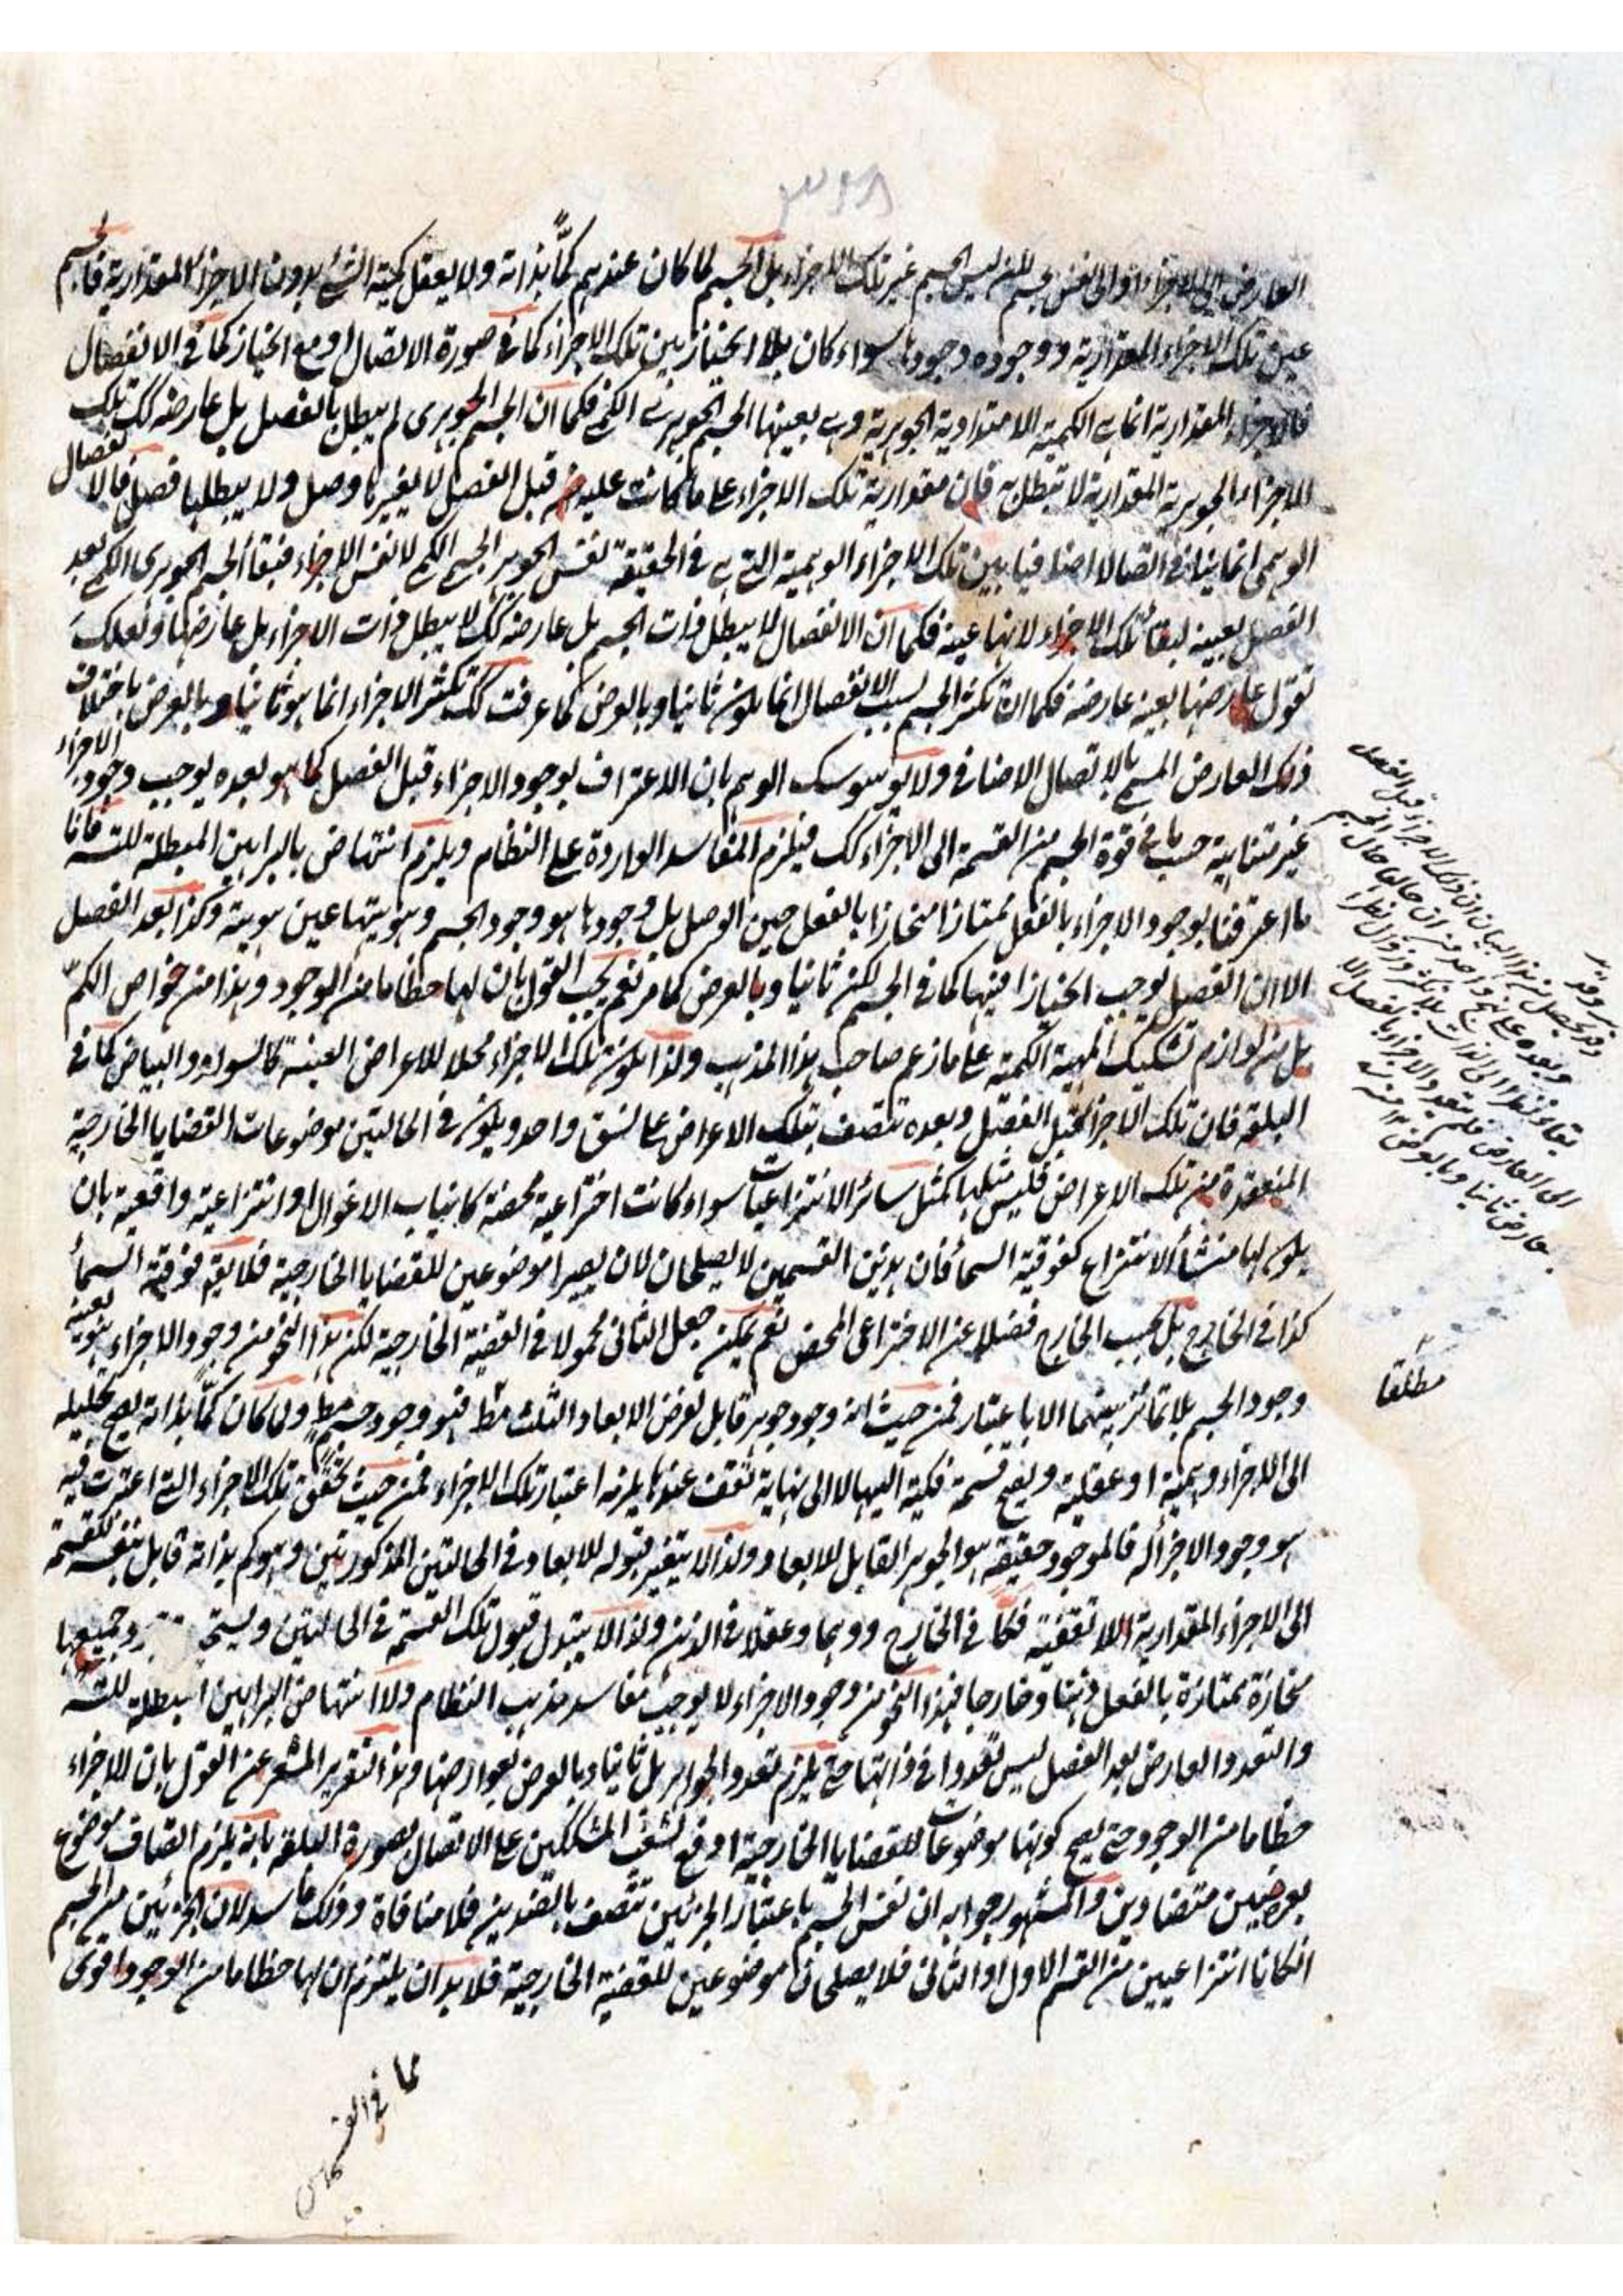 العارض الى الاجزاء او الى نفس الجسم ليس الجسم غير تلك الاجزاء بل الجسم لما كان عندهم كمًّا بذاته ولا يعقل كمية الشئ بدون الاجزاء المقدارية فالجسم
عين تلك الاجزاء المقدارية ووجوده وجودها سواء كان بلا انحياز بين تلك الاجزاء كما فى صورة الاتصال او مع انحياز كما فى الانفصال
فالاجزاء المقدارية انما هى الكمية الامتدادية الجوهرية وهى بعينها الجسم الجوهرى الكمى فكما ان الجسم الجوهرى لم يبطل بالفصل بل عارضه كك تلك
الاجزاء الجوهرية المقدارية لا تبطل به فان مقدارية تلك الاجزاء على ما كانت عليه قبل الفصل لا يغيرها وصل ولا يبطلها فصل فالانفصال
الوهمى انما ينافى اتصالا اضافيا بين تلك الاجزاء الوهمية التى هى فى الحقيقة نفس الجوهر الجسمى الكمى لا نفس الاجزاء فبقاء الجسم الجوهرى الكمى بعد
الفصل بعينه لبقاء تلك الاجزاء لانها عينه فكما ان الانفصال لا يبطل ذات الجسم بل عارضه كك لا يبطل ذات الاجزاء بل عارضها ولعلك
تقول عارضها بعينه عارضه فكما ان تكثر الجسم بسبب الانفصال انما يكون ثانيا وبالعرض كما عرفت كك تكثر الاجزاء انما هو ثانيا وبالعرض باختلاف
ذلك العارض المسمى بالاتصال الاضافى ولا يوسوسك الوهم بان الاعتراف بوجود الاجزاء قبل الفصل كما هو بعده يوجب وجود الاجزاء
غير متناهية حسب ما فى قوة الجسم من القسمة الى الاجزاء كك فيلزم المفاسد الواردة على النظام ويلزم انتهاض بالبراهين المبطلة للتسه فانا
ما اعترفنا بوجود الاجزاء بالفعل ممتازا منحازا بالفعل حين الوصل بل وجودها هو وجود الجسم وهويتها عين هويته وكذا بعد الفصل
الا ان الفصل يوجب انحيازا فيها كما فى الجسم لكن ثانيا وبالعرض كما مر نعم يجب القول بان لها حظا ما من الوجود وهذا من خواص الكم
بل من لوازم تشكيك المهية الكمية على ما زعم صاحب هذا المذهب ولذا يكون تلك الاجزاء محلا للاعراض العينية كالسواد والبياض كما فى
البلقة فان تلك الاجزاء قبل الفصل وبعده تتصف بتلك الاعراض على نسق واحد ويكون فى الحالتين موضوعات القضايا الخارجية
المنعقدة من تلك الاعراض فليس مثلها كمثل سائر الانتزاعيات سواء كانت اختراعية محضة كانياب الاغوال او انتزاعية واقعية بان
يكون لها منشأ الانتزاع كفوقية السماء فان هذين القسمين لا يصلحان لان يصيرا موضوعين للقضايا الخارجية فلا يقم فوقية السماء
كذا فى الخارج بل بحسب الخارج فضلا عن الاختراعى المحض نعم يمكن جعل الثانى محمولا فى القضية الخارجية لكن هذا النحو من وجود الاجزاء هو بعينه
وجود الجسم بلا تمائز بينهما الا باعتبار فمن حيث انه وجود جوهر قابل لفرض الابعاد الثلث مط فهو وجود جسم مط ولما كان كمًّا بذاته يصح تحليله
الى الاجزاء وهمية او عقلية ويصح قسمة فكية اليها لا الى نهاية تقف عندها يلزمه اعتبار تلك الاجزاء فمن حيث تحقق تلك الاجزاء التى اعتبرت فيه
هو وجود الاجزاء له فالموجود حقيقة هو الجوهر القابل للابعاد ولذا لا يتغير قبوله للابعاد فى الحالتين المذكورتين وهو كم بذاته قابل بنفسه للقسمة
الى الاجزاء المقدارية اللا تقفية فكًّا فى الخارج ووهما وعقلا فى الذهن ولذا لا يتبدل قبول تلك القسمة فى الحالتين ويستحـ وجميعها
منحازة ممتازة بالفعل ذهنا وخارجا فهذا النحو من وجود الاجزاء لا يوجب مفاسد مذهب النظام ولا انتهاض البراهين المبطلة للتسه
والتعدد العارض بعد الفصل ليس تعددا فى ذاتها حتى يلزم تعدد الجواهر بل ثانيا وبالعرض بعوارضها وهذا التقرير المشعر عن القول بان للاجزاء
حظا ما من الوجود حتى يصح كونها موضوعات للقضايا الخارجية اوقع لشغب المشككين على الاتصال بصورة البلقة بانه يلزم اتصاف موضوع
بعرضين متضادين والمشهور جوابه ان نفس الجسم باعتبار الجزئين تتصف بالضدين فلا منافاة وذلك فاسد لان الجزئين من الجسم
ان كانا انتزاعيين من القسم الاول او الثانى فلا يصلحان موضوعين للقضية الخارجية فلا بد ان يلتزم ان لها حظا ما من الوجود اقوى
مما فى القسمين
وقد يحصل من هذا البيان ان ذلك الاجزاء قبل الفصل
وبعده على نهج واحد من ان حالها حال الجسم
بقاء نظرا الى الذات بلا تكثر وزوال نظرا
الى العارض فلم يتعدد الاجزاء بالفصل الا
بعارض ثانيا وبالعرض ١٢ منه
مطلقا